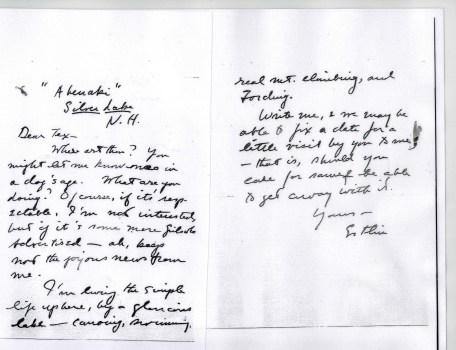 "Abenaki"
Silver Lake
N.H.
Dear Tex—
Where art thou? You
might let me know once in
a dog's age. What are you
doing? Of course, if it's resp-
ectable, I'm not interested
but if it's some more
advertised — ah, keep
not the joyous news from
me.
I'm living the simple
life up here, by a glorious
lake — canoeing, swimming,
real mt. climbing, and
Write me, & we may be
able to fix a date for a
little visit by you to me,
— that is, should you
care for same & be able
to get away with it.
Yours —